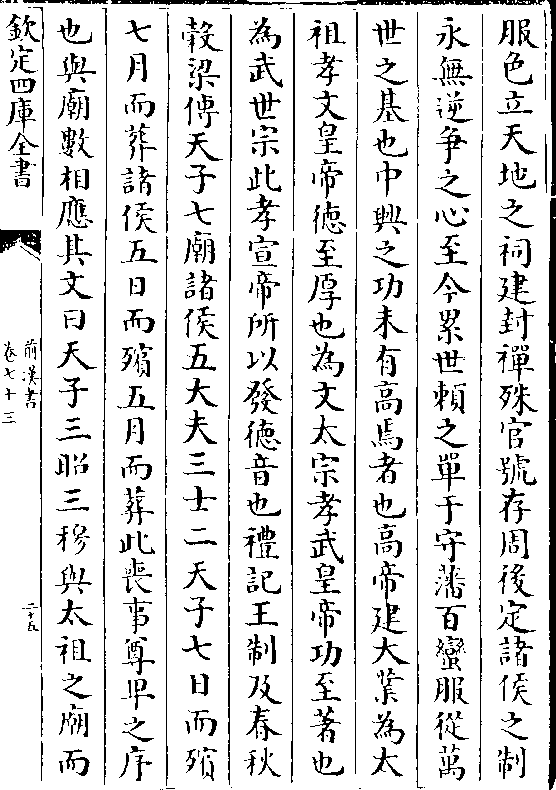 服色立天地之祠建封禪殊官號存周後定諸侯之制
永無逆爭之心至今累世賴之單于守藩百蠻服從萬
世之基也中興之功未有高焉者也高帝建大業為太
祖孝文皇帝德至厚也為文太宗孝武皇帝功至著也
為武世宗此孝宣帝所以發德音也禮記王制及春秋
穀梁傳天子七廟諸侯五大夫三士二天子七日而殯
七月而葬諸侯五日而殯五月而葬此喪事尊卑之序
也與廟數相應其文曰天子三昭三穆與太祖之廟而
欽定四庫全書
前漢書
卷七十三
二十五